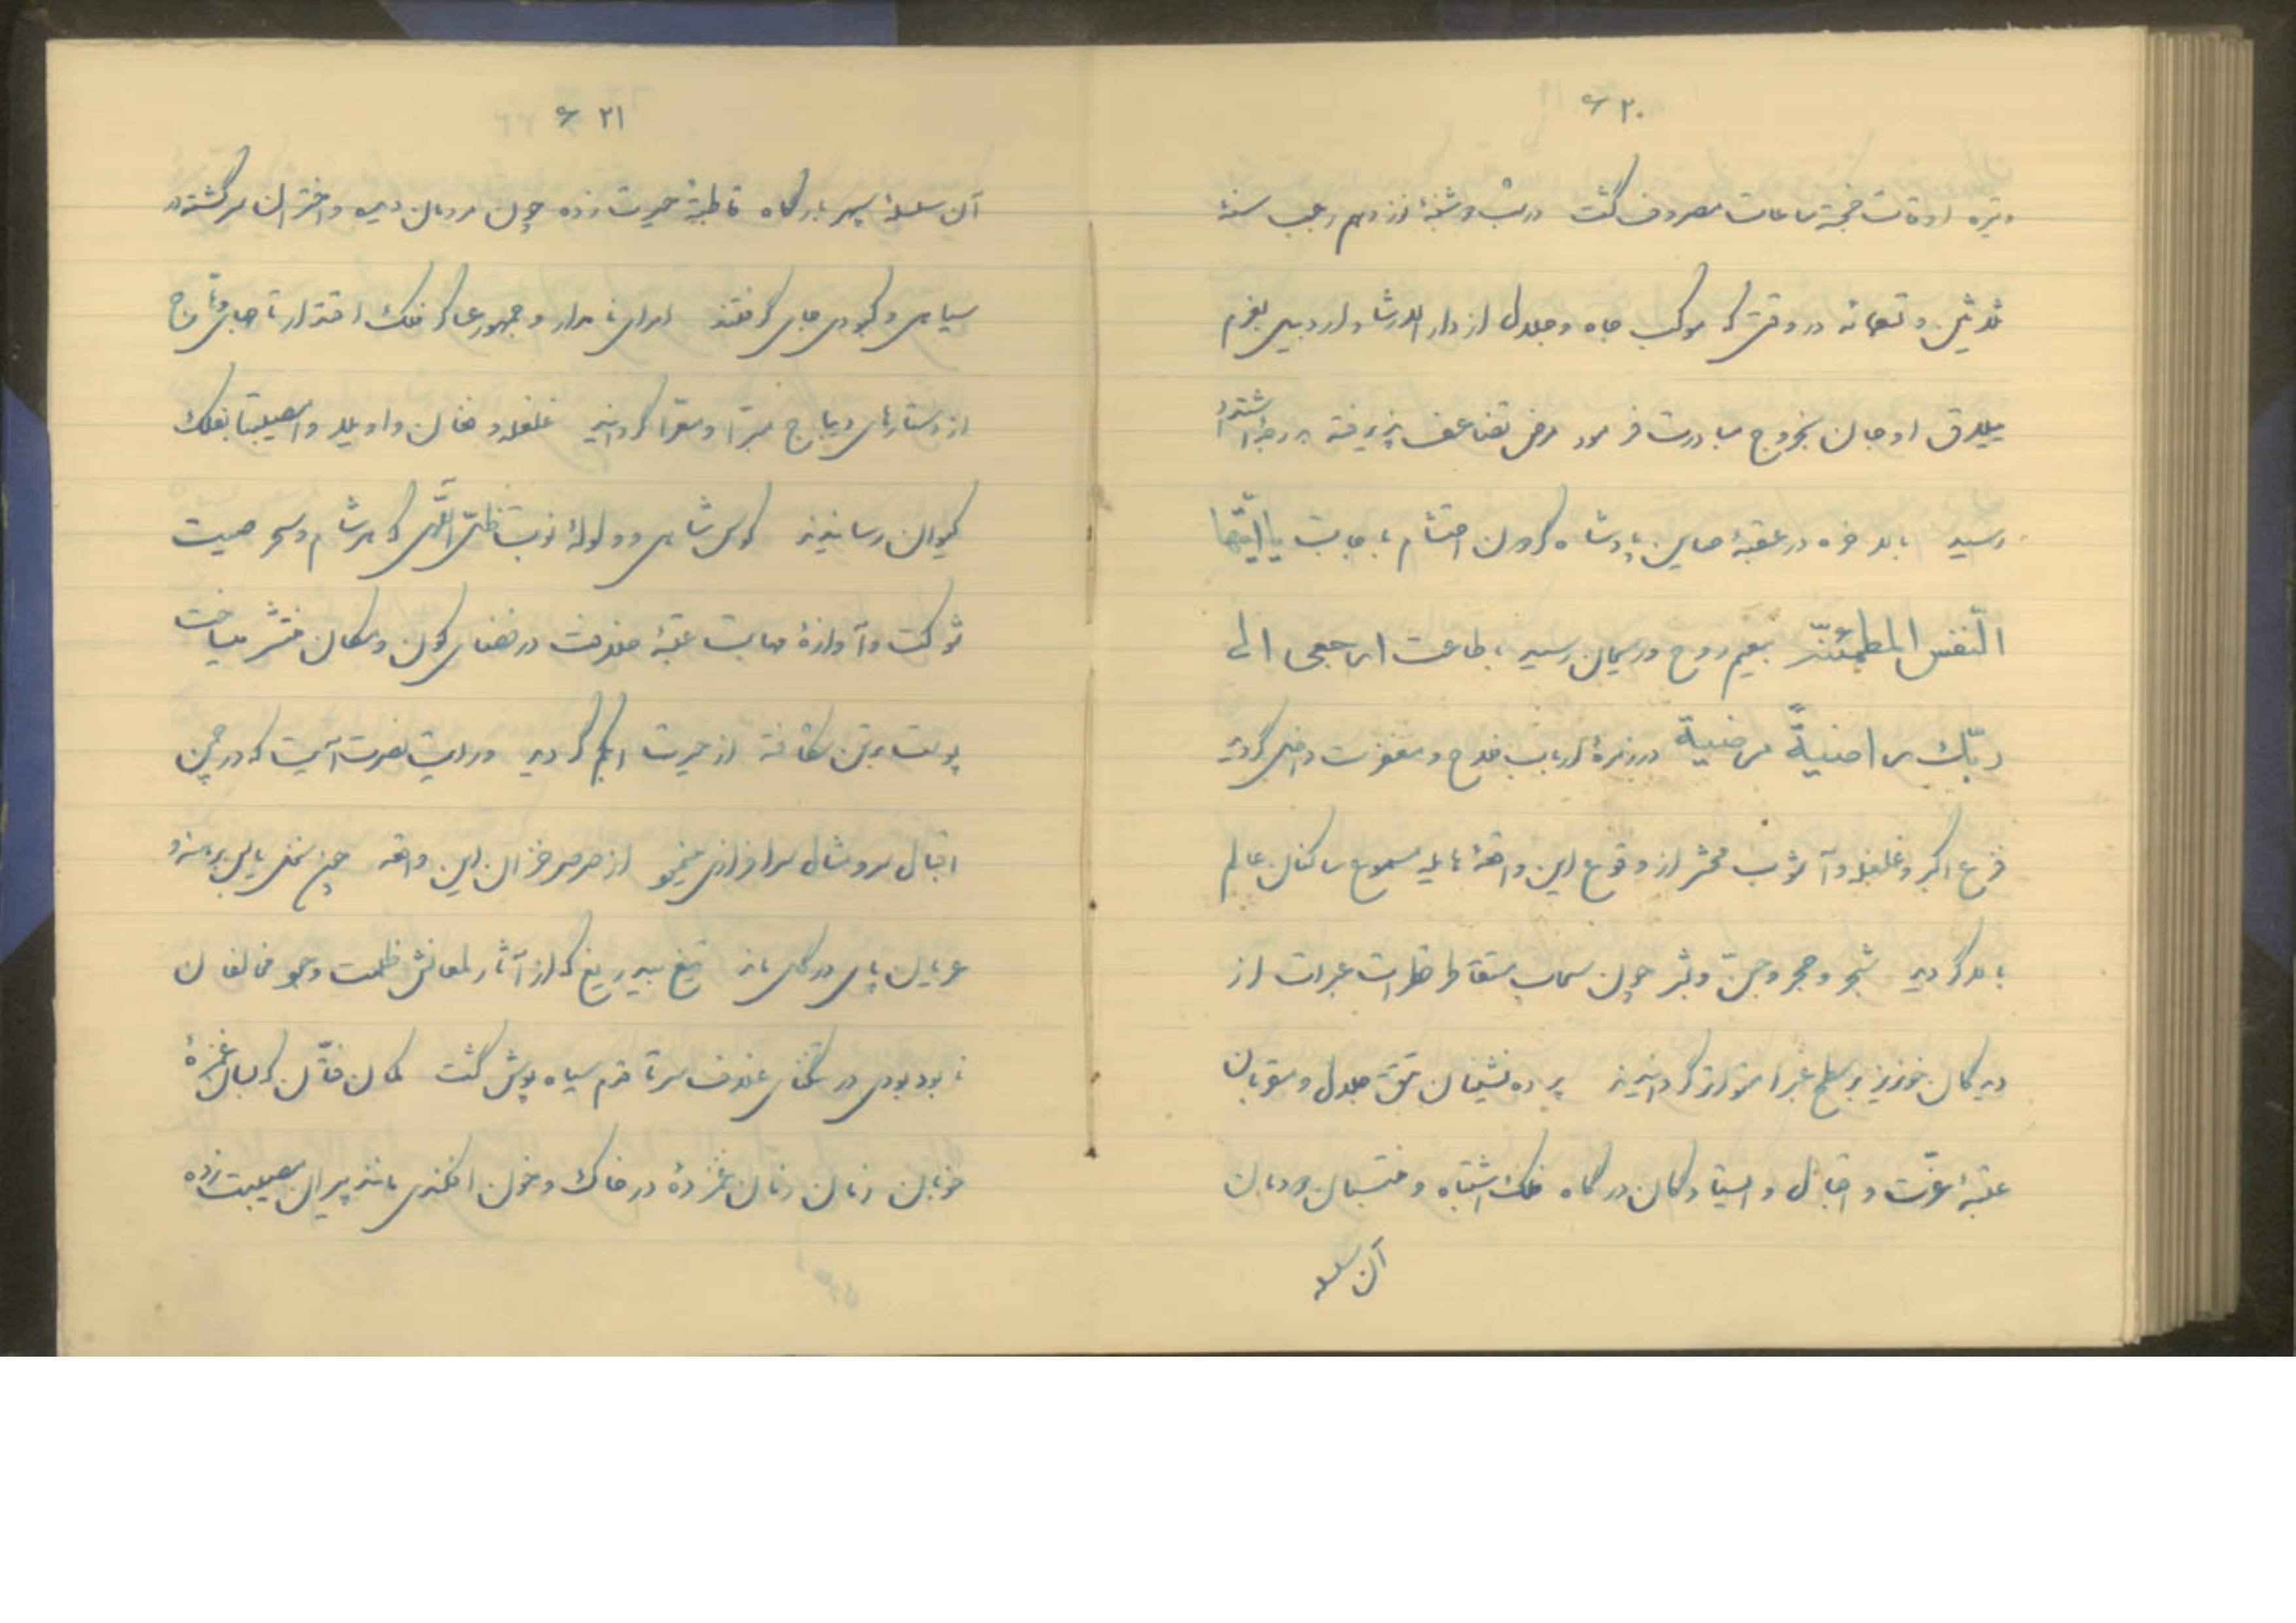 ۲۰
وتیره اوقات خجسته ساعات مصروف گشت در شب دوشنبه نوزدهم رجب سنهٔ
ثلثین و تسعمائه در وقتی که موکب جاه و جلال از دار الارشاد اردبیل بعزم
ییلاق اوجان بخروج مبادرت فرمود مرض تضاعف پذیرفته بدرجهٔ اشتداد
رسید بالاخره در عقبهٔ صاین پادشاه گردون احتشام باجابت یا ایّتها
النّفس المطمئنّة بنعیم روح و ریحان رسید باطاعت ارجعی الی
ربّك راضیةً مرضیة در زمرهٔ ارباب فلاح و مغفرت داخل گردید
فزع اکبر و غلغله و آشوب محشر از وقوع این واقعهٔ هایله مسموع ساکنان عالم
بالا گردید شجر و حجر و جنّ و بشر چون سحاب متقاطر قطرات عبرات از
دیدگان خونریز بر سطح غبرا متواتر گردانیدند پرده نشینان تتق جلال و مقربان
عتبهٔ عزّت و اقبال و ایستادگان درگاه فلک اشتباه و منتسبان دودمان
آن سلسله
۲۱
آن سلسلهٔ سپهر بارگاه قاطبةً حیرت زده چون مردمان دیده و اختران سرگشته در
سیاهی و کبودی جای گرفتند امرای نامدار و جمهور عساکر فلک اقتدار تا جای و تاج
از دستارهای دیباج مبرّا و معرّا گردانیده غلغله و فغان واویلا و وامصیبتا بفلک
کیوان رسانیدند کوس شاهی و ولولهٔ نوبت ظلّ اللّهی که هر شام و سحر صیت
شوکت و آوازهٔ مهابت عتبهٔ خلافت در فضای کون و مکان منتشر میساخت
پوست بر تن شکافته از حیرت ابکم گردید و رایت نصرت آیت که در چمن
اقبال سرو مثال سرافرازی مینمود از صرصر خزان این واقعه چون نخل بایر برهنه و
عریان پای در گل ماند تیغ بیدریغ که از آثار لمعانش ظلمت وجود مخالفان
نابود بودی در تنگنای غلاف سر تا قدم سیاه پوش گشت کمان فتّان که بسان غمزهٔ
خوبان زمان زمان غمزدهٔ در خاک و خون افکندی مانند پیران مصیبت زده